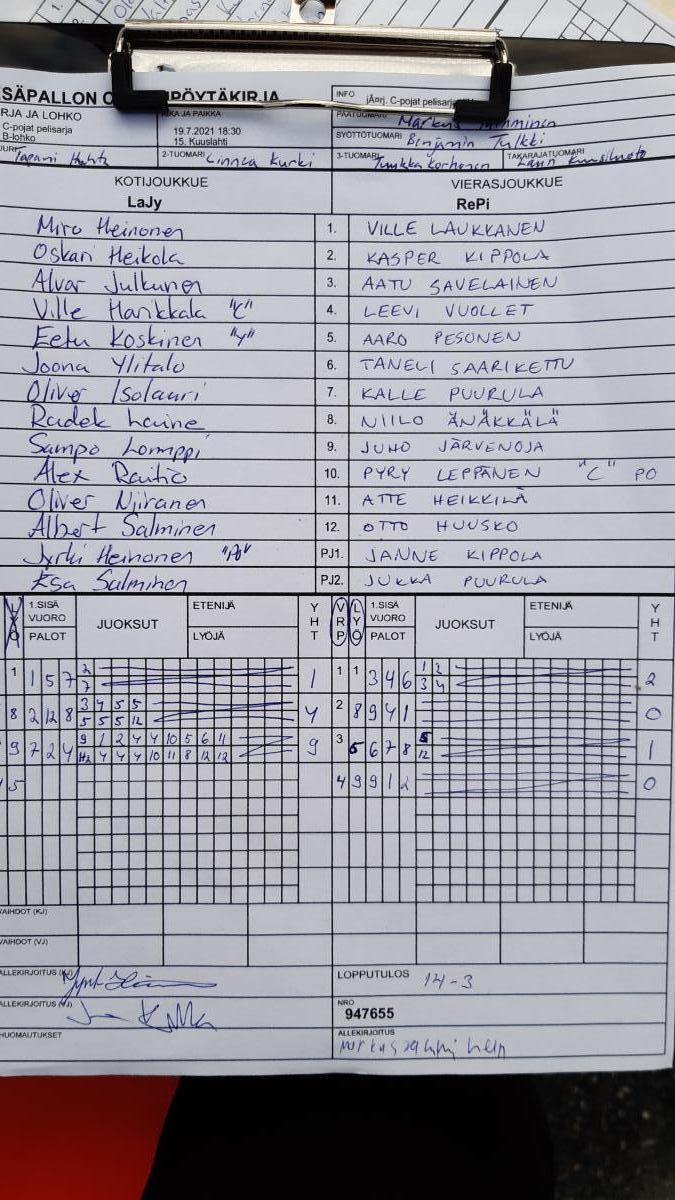 SÄPALLON O PÖYTÄKIRJA
INFO jÄ¤rj. C-pojat pelisarja
RJA JA LOHKO
C-pojat pelisarja
B-lohko
IKA JA PAIKKA
19.7.2021 18:30
15. Kuuslahti
PÄÄTUOMARI Markus
SYÖTTÖTUOMARI Benjamin Tulkki
Tapani
2-TUOMARI Linnea Kurki
3-TUOMARI Tuukka Korhonen
TAKARAJATUOMARI
KOTIJOUKKUE VIERASJOUKKUE
LaJy RePi
Miro Heinonen 1. VILLE LAUKKANEN
Oskari Heikola 2. KASPER KIPPOLA
Alvar Julkunen 3. AATU SAVELAINEN
Ville Harikkala "C" 4. LEEVI VUOLLET
Eetu Koskinen "Y" 5. AARO PESONEN
Joona Ylitalo 6. TANELI SAARIKETTU
Oliver Isolauri 7. KALLE PUURULA
Radek Laine 8. NIILO ÄNÄKKÄLÄ
Sampo Lomppi 9. JUHO JÄRVENOJA
Alex Raitio 10. PYRY LEPPÄNEN "C" PO
Oliver Niiranen 11. ATTE HEIKKILÄ
Albert Salminen 12. OTTO HUUSKO
Jyrki Heinonen PJ1. JANNE KIPPOLA
Esa Salminen PJ2. JUKKA PUURULA
LYÖ 1.SISÄ VUORO PALOT JUOKSUT ETENIJÄ LYÖJÄ YHT VRP LYÖ 1.SISÄ VUORO PALOT JUOKSUT ETENIJÄ LYÖJÄ YHT
1 1 5 7 2 1 1 1 3 4 6 1 2 2
7 3 4
8 2 12 8 3 4 5 5 4 2 8 9 4 1 0
5 5 5 12
9 7 2 4 9 1 2 4 4 10 5 6 11 9 3 5 6 7 8 5 1
4 4 4 10 11 8 12 12 12
5 4 9 9 1 2 0
VAIHDOT (KJ)
VAIHDOT (VJ)
ALLEKIRJOITUS
LOPPUTULOS 14-3
ALLEKIRJOITUS (VJ)
NRO
947655
HUOMAUTUKSET
ALLEKIRJOITUS